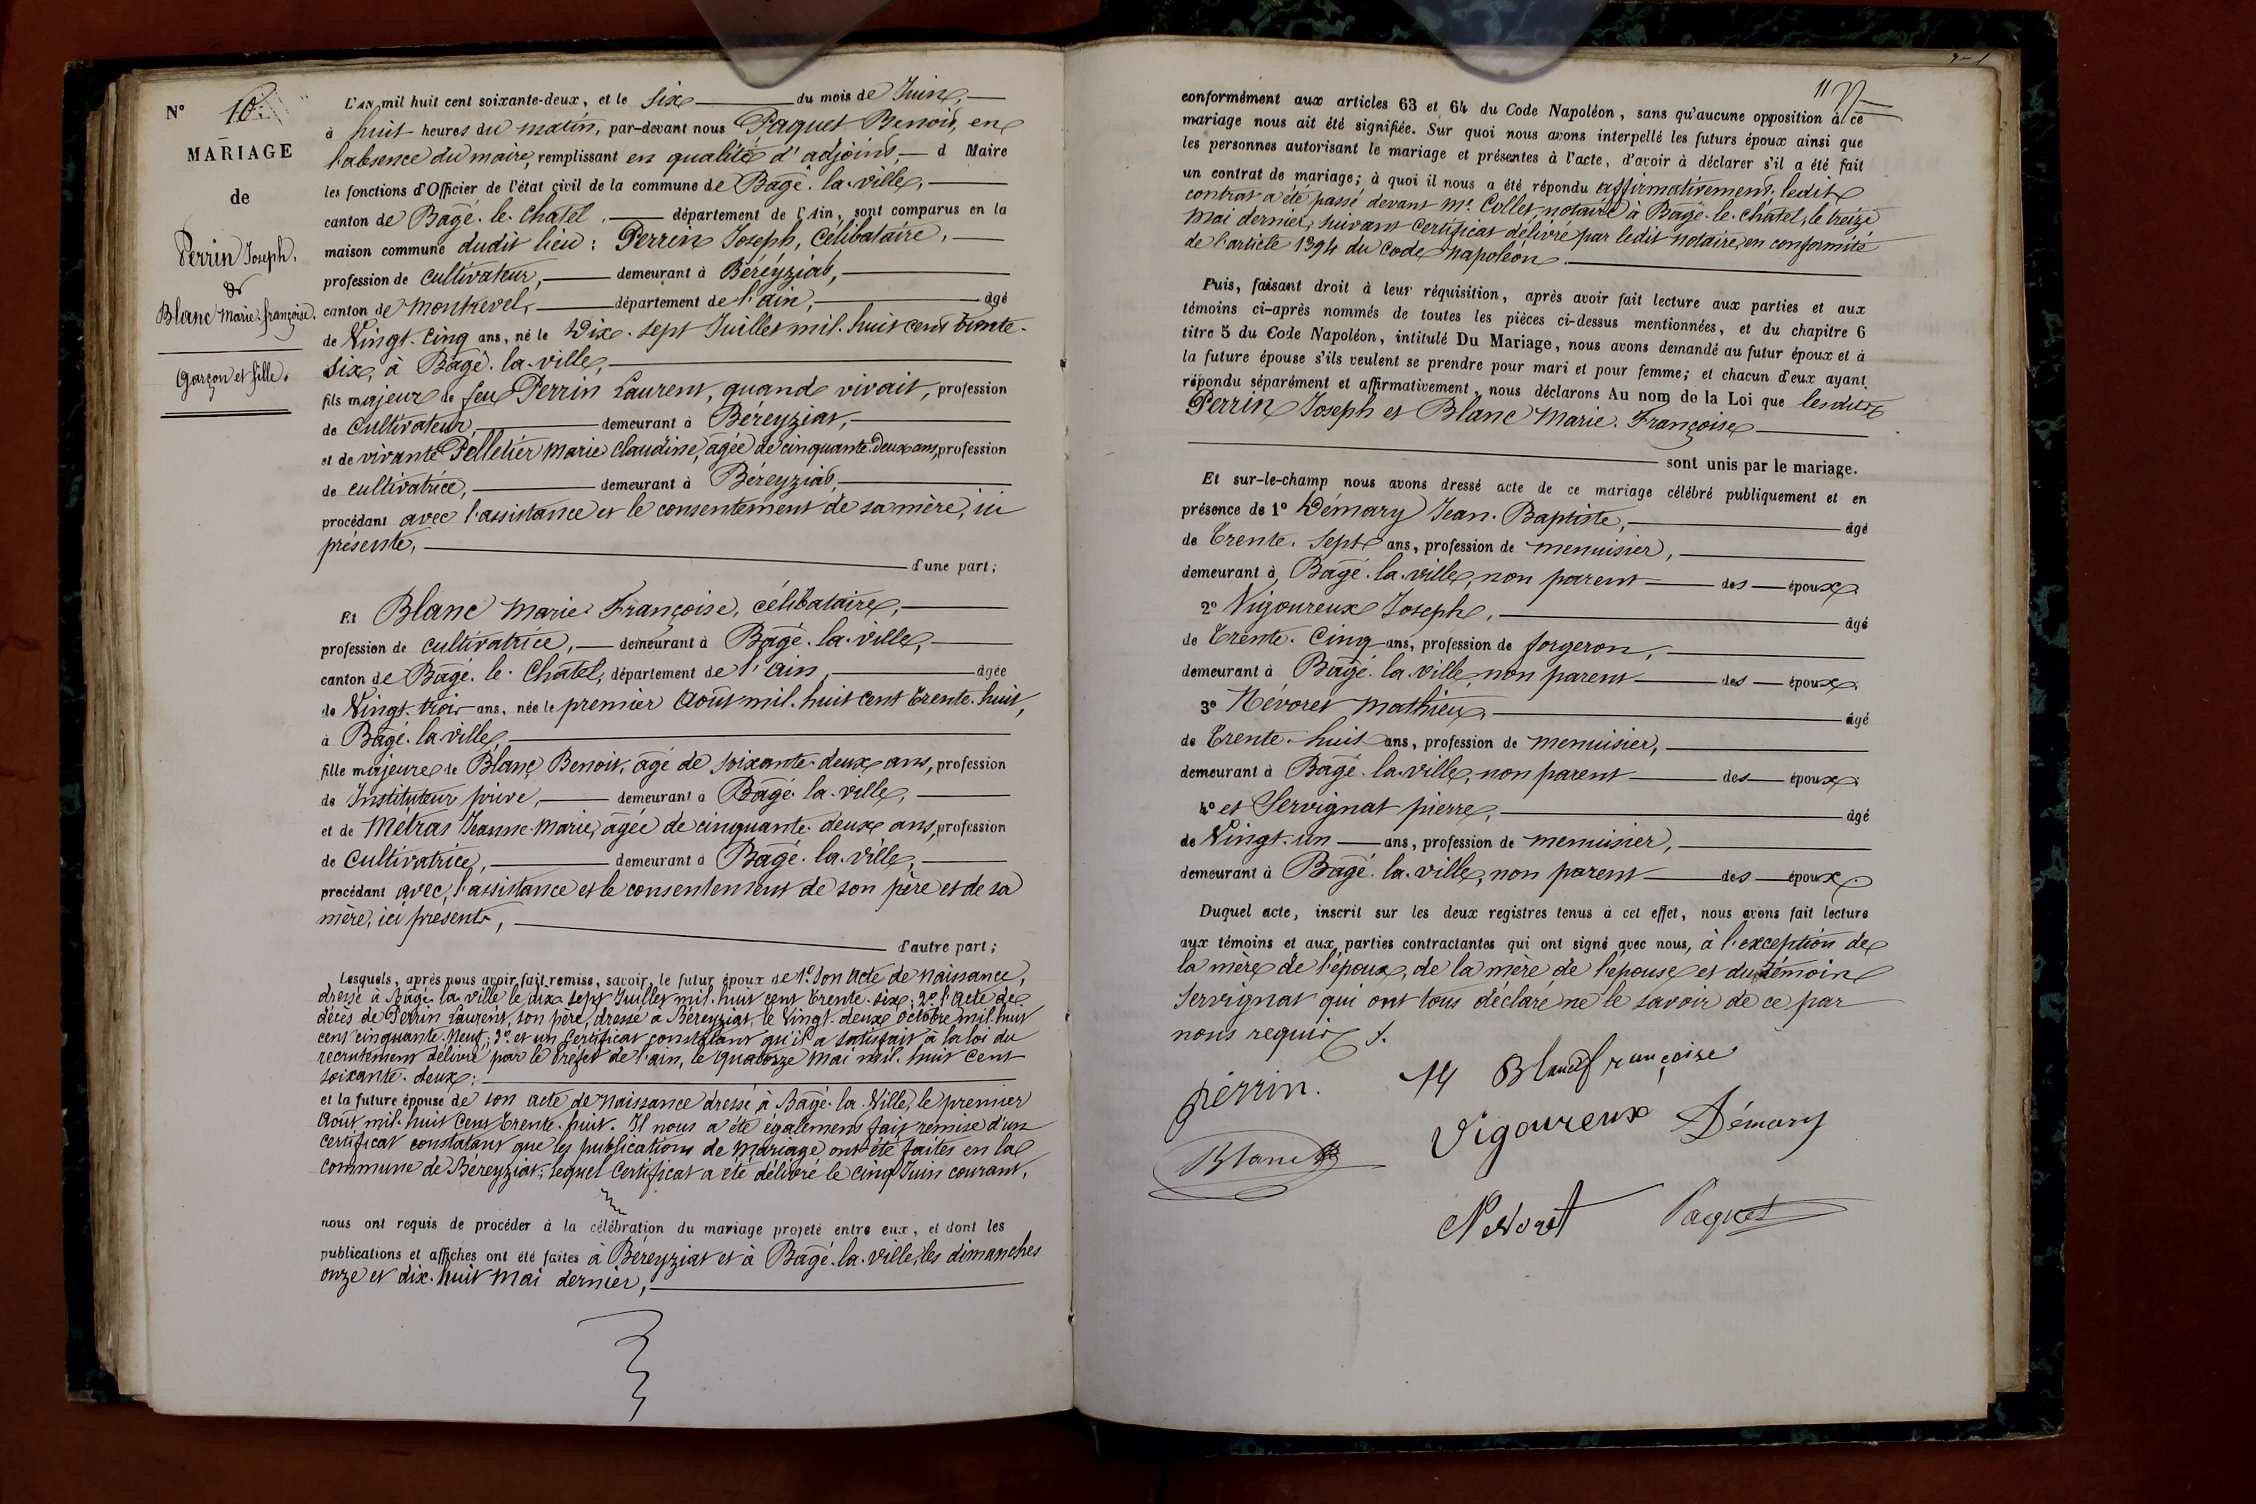 N° 10.
MARIAGE
de
Perrin Joseph.
&
Blanc Marie-françoise.
Garçon et fille.
L'AN mil huit cent soixante-deux, et le six du mois de Juin,
à huit heures du matin, par-devant nous Paquet Benoit, en
l'absence du maire, remplissant en qualité d'adjoint, d Maire
les fonctions d'Officier de l'état civil de la commune de Bagé-la-ville,
canton de Bagé-le-Châtel, département de l'Ain, sont comparus en la
maison commune dudit lieu : Perrin Joseph, Célibataire,
profession de cultivateur, demeurant à Béréyziat,
canton de Montrevel, département de l'ain, âgé
de Vingt-Cinq ans, né le Dix-sept Juillet mil-huit cent trente-
six, à Bagé-la-ville,
fils majeur de feu Perrin Laurent, quand vivait, profession
de Cultivateur, demeurant à Béreyziat,
et de vivante Pelletier Marie Claudine, agée de cinquante-deux ans, profession
de cultivatrice, demeurant à Béreyziat,
procédant avec l'assistance et le consentement de sa mère, ici
présente,
d'une part ;
Et Blanc Marie Françoise, célibataire,
profession de cultivatrice, demeurant à Bagé-la-ville,
canton de Bagé-le-Châtel, département de l'ain, âgée
de Vingt-trois ans, née le premier Août mil-huit cent trente-huit,
à Bagé-la-ville,
fille majeure de Blanc Benoit, âgé de soixante-deux ans, profession
de Instituteur privé, demeurant à Bagé-la-ville,
et de Métras Jeanne-Marie, âgée de cinquante-deux ans, profession
de Cultivatrice, demeurant à Bagé-la-ville,
procédant avec l'assistance et le consentement de son père et de sa
mère, ici présents,
d'autre part ;
Lesquels, après nous avoir fait remise, savoir, le futur époux de 1° son Acte de Naissance,
dressé à Bagé-la-ville le dix-sept Juillet mil-huit cent trente-six ; 2° l'acte de
décès de Perrin Laurent, son père, dressé à Béreyziat, le Vingt-deux Octobre mil-huit
cent cinquante-Neuf ; 3° et un Certificat constatant qu'il a satisfait à la loi du
recrutement délivré par le Préfet de l'ain, le quatorze Mai mil-huit cent
soixante-deux ;
et la future épouse de son acte de Naissance dressé à Bagé-la-Ville, le premier
Août mil-huit Cent trente-huit. Il nous a été également fait remise d'un
certificat constatant que les publications de Mariage ont été faites en la
commune de Béreyziat ; lequel Certificat a été délivré le cinq Juin courant,
nous ont requis de procéder à la célébration du mariage projeté entre eux, et dont les
publications et affiches ont été faites à Béreyziat et à Bagé-la-ville, les dimanches
onze et dix-huit Mai dernier,
11
conformément aux articles 63 et 64 du Code Napoléon, sans qu'aucune opposition à ce
mariage nous ait été signifiée. Sur quoi nous avons interpellé les futurs époux ainsi que
les personnes autorisant le mariage et présentes à l'acte, d'avoir à déclarer s'il a été fait
un contrat de mariage ; à quoi il nous a été répondu affirmativement. ledit
contrat a été passé devant Me Collet, notaire à Bagé-le-châtel, le treize
Mai dernier, suivant Certificat délivré par ledit notaire, en conformité
de l'article 1394 du Code napoléon.
Puis, faisant droit à leur réquisition, après avoir fait lecture aux parties et aux
témoins ci-après nommés de toutes les pièces ci-dessus mentionnées, et du chapitre 6
titre 5 du Code Napoléon, intitulé Du Mariage, nous avons demandé au futur époux et à
la future épouse s'ils veulent se prendre pour mari et pour femme ; et chacun d'eux ayant
répondu séparément et affirmativement, nous déclarons Au nom de la Loi que lesdits
Perrin Joseph et Blanc Marie-Françoise
sont unis par le mariage.
Et sur-le-champ nous avons dressé acte de ce mariage célébré publiquement et en
présence de 1° Démary Jean-Baptiste, âgé
de Trente-sept ans, profession de menuisier,
demeurant à Bagé-la-ville, non parent des époux.
2° Vigoureux Joseph, âgé
de Trente-Cinq ans, profession de forgeron,
demeurant à Bagé-la-ville, non parent des époux.
3° Névoret Mathieu, âgé
de Trente-huit ans, profession de menuisier,
demeurant à Bagé-la-ville, non parent des époux.
4° et Servignat pierre, âgé
de Vingt-un ans, profession de menuisier,
demeurant à Bagé-la-ville, non parent des époux.
Duquel acte, inscrit sur les deux registres tenus à cet effet, nous avons fait lecture
aux témoins et aux parties contractantes qui ont signé avec nous, à l'exception de
la mère de l'époux, de la mère de l'épouse et du témoin
Servignat qui ont tous déclaré ne le savoir de ce par
nous requis.
perrin. M Blanc françoise
Vigoureux Démary
Blanc
Nevoret Paquet